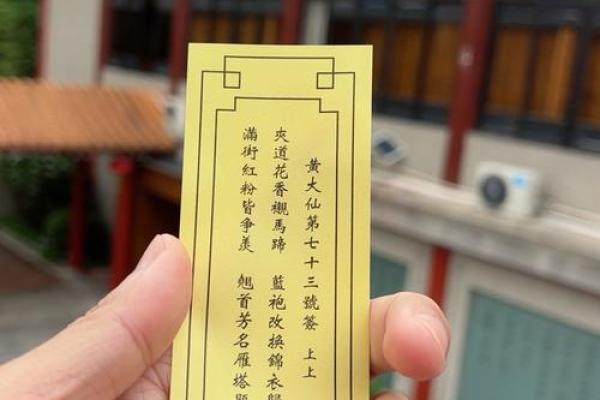 黃大仙第七十三號簽 上上
夾道花香襯馬蹄 藍袍改換錦衣歸
滿街紅粉皆爭羨 翹首芳名雁塔題